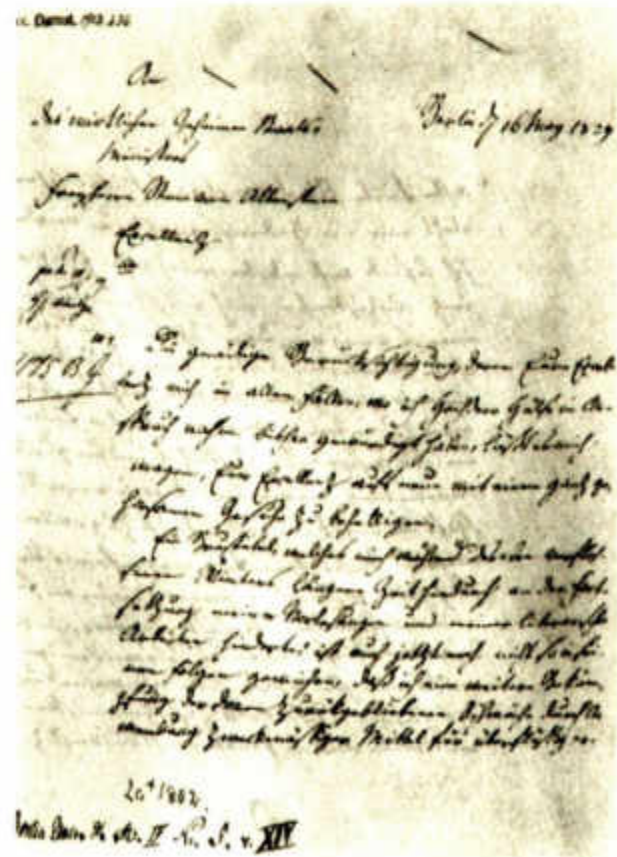 acc. Darmst. 1913.236
An
des wirklichen Geheimen Staats-
Ministers
Freyherrn Stein von Altenstein
Excellenz.
Berlin d. 16 May 1829
175 B
Die gnädige Berücksichtigung, deren Eure Excel-
lenz mich in allen Fällen, wo ich Hochdero Hülfe in An-
spruch nahm bisher gewürdigt haben, läßt es mich
wagen, Eure Excellenz aufs neue mit einem ganz ge-
horsamen Gesuche zu behelligen.
Ein Brustübel, welches mich während des verflos-
senen Winters längere Zeit hindurch an der Fort-
setzung meiner Vorlesungen und meiner literarischen
Arbeiten hinderte, ist auch jetzt noch nicht so in sei-
nen Folgen gewichen, daß ich eine weitere Bekäm-
pfung der davon zurückgebliebenen Schwäche durch An-
wendung zweckmäßiger Mittel für überflüssig
XIV